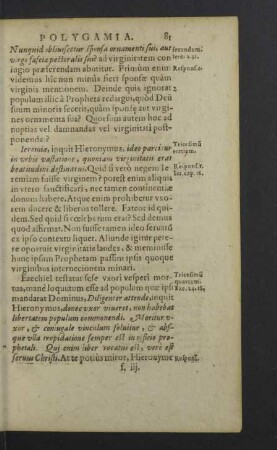 POLYGAMIA. 81
Nunquid obliuiscetur sponsa ornamenti sui, aut
virgo fasciæ pectoralis suæ? ad virginitatem con
iugio præferendam abutitur. Primùm enim
videmus hîc non minùs fieri sponsæ quàm
virginis mentionem. Deinde quis ignorat
populum illic à Propheta redargui, quòd Deū
suum minoris fecerit, quàm sponsæ aut vir-
gines ornamenta sua? Quorsum autem hoc ad
nuptias vel damnandas vel virginitati post-
ponendas?
Ieremiæ, inquit Hieronymus, ideo parcitur
in vrbis vastatione, quoniam virginitatis erat
beatitudini destinatus. Quid si verò negem Ie
remiam fuisse virginem? potest enim aliquis
in vtero sanctificari, nec tamen continentiæ
donum habere. Atque enim prohibetur vxo-
rem ducere & liberos tollere. Fateor id qui-
dem. Sed quid si cœlebs non erat? Sed demus
quod affirmat. Non fuisse tamen ideo seruatū
ex ipso contextu liquet. Aliunde igitur pete-
re oportuit virginitatis laudes, & meminisse
hunc ipsum Prophetam passim ipsis quoque
virginibus internecionem minari.
Ezechiel testatur sese vxori vesperi mor-
tuæ, mané loquutum esse ad populum quæ ipsi
mandarat Dominus, Diligenter attende, inquit
Hieronymus, donec vxor viueret, non habebat
libertatem populum commonendi. Moritur v-
xor, & coniugale vinculum soluitur, & abs-
que vlla trepidatione semper est in officio pro-
phetali. Qui enim liber vocatus est, verè est
seruus Christi. At te potiùs miror, Hieronyme
f. iij.
secundum.
Iere. 2. 32.
Respons.
Tricesimū
tertium.
Respons.
Ier. cap. 16.
Tricesimū
quartum.
Eze. 24. 18.
Respons.